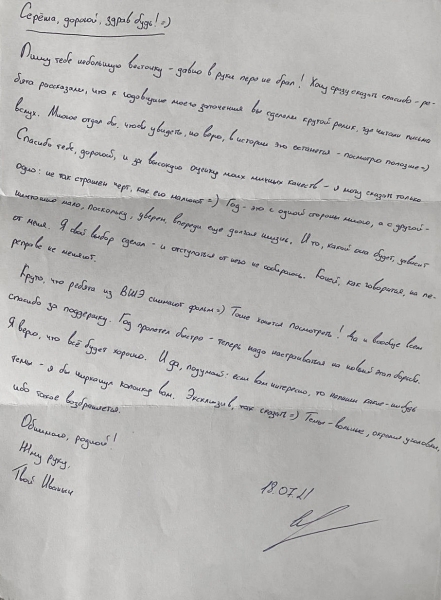 Серёжа, дорогой, здрав будь! =)
Пишу тебе небольшую весточку - давно в руки перо не брал! Хочу сразу сказать спасибо - ре-
бята рассказали, что к годовщине моего заточения вы сделали крутой ролик, где читали письмо
вслух. Многое отдал бы, чтобы увидеть, но верю, в истории это останется - посмотрю попозже =)
Спасибо тебе, дорогой, и за высокую оценку моих личных качеств - я могу сказать только
одно: не так страшен черт, как его малюют =) Год - это с одной стороны много, а с другой -
мало, поскольку, уверен, впереди ещё долгая жизнь. И то, какой она будет, зависит
от меня. Я свой выбор сделал - и отступаться от него не собираюсь. Коней, как говорится, на пе-
реправе не меняют.
Круто, что ребята из ВШЭ снимают фильм =) Тоже хочется посмотреть! Да и вообще всем
спасибо за поддержку. Год пролетел быстро - теперь надо настраиваться на новый этап борьбы.
Я верю, что всё будет хорошо. И да, подумай: если вам интересно, то напиши какие-нибудь
темы - я бы чиркнул колонку вам. Эксклюзив, так сказать =) Темы - вольные, окромя уголовки,
ибо такое возбраняется.
Обнимаю, родной!
Жму руку,
Твой Иваныч
19.07.21